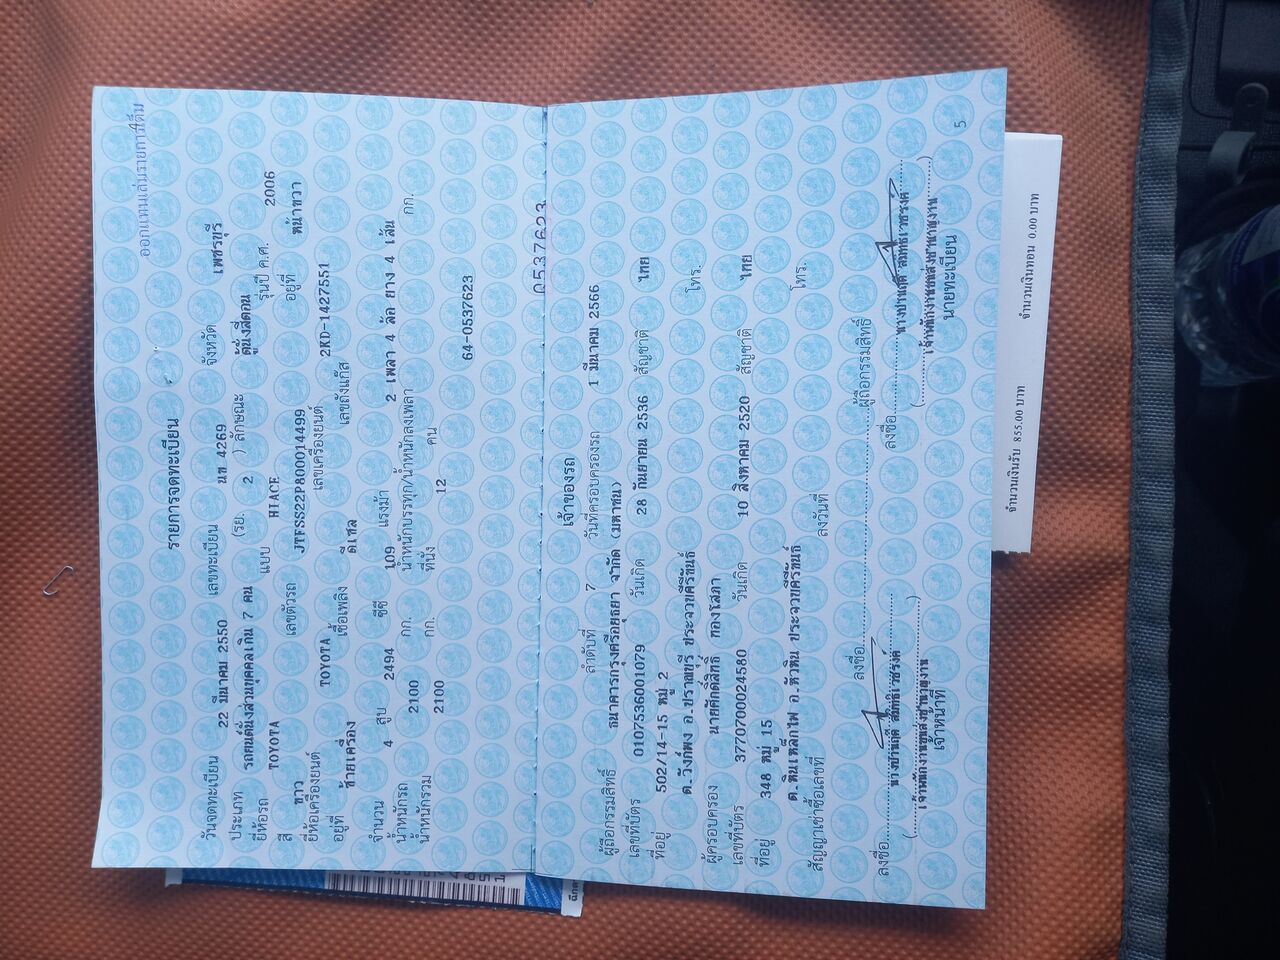 ออกแทนเล่มรายการเต็ม
รายการจดทะเบียน
วันจดทะเบียน 22 มีนาคม 2550 เลขทะเบียน นท 4269 จังหวัด เพชรบุรี
ประเภท รถยนต์นั่งส่วนบุคคลเกิน 7 คน (รย. 2 ) ลักษณะ ตู้นั่งสี่ตอน
ยี่ห้อรถ TOYOTA แบบ HIACE รุ่นปี ค.ศ. 2006
สี ขาว เลขตัวรถ JTFSS22P800014499 อยู่ที่ หน้าขวา
ยี่ห้อเครื่องยนต์ TOYOTA เลขเครื่องยนต์ 2KD-1427551
อยู่ที่ ซ้ายเครื่อง เชื้อเพลิง ดีเซล เลขถังแก๊ส
จำนวน 4 สูบ 2494 ซีซี 109 แรงม้า 2 เพลา 4 ล้อ ยาง 4 เส้น
น้ำหนักรถ 2100 กก. น้ำหนักบรรทุก/น้ำหนักลงเพลา กก.
น้ำหนักรวม 2100 กก. ที่นั่ง 12 คน
64-0537623
0537623
เจ้าของรถ
ลำดับที่ 7 วันที่ครอบครองรถ 1 มีนาคม 2566
ผู้ถือกรรมสิทธิ์ ธนาคารกรุงศรีอยุธยา จำกัด (มหาชน)
เลขที่บัตร 0107536001079 วันเกิด 28 กันยายน 2536 สัญชาติ ไทย
ที่อยู่ 502/14-15 หมู่ 2
ต.วังก์พง อ.ปราณบุรี ประจวบคีรีขันธ์ โทร.
ผู้ครอบครอง นายศักดิ์สิทธิ์ ทองโสภา
เลขที่บัตร 3770700024580 วันเกิด 10 สิงหาคม 2520 สัญชาติ ไทย
ที่อยู่ 348 หมู่ 15
ต.หินเหล็กไฟ อ.หัวหิน ประจวบคีรีขันธ์ โทร.
สัญญาเช่าซื้อเลขที่ ลงวันที่
ลงชื่อ ผู้ถือกรรมสิทธิ์
ลงชื่อ ลงชื่อ
เจ้าหน้าที่ นายทะเบียน
5
จำนวนเงินรับ 855.00 บาท จำนวนเงินทอน 0.00 บาท